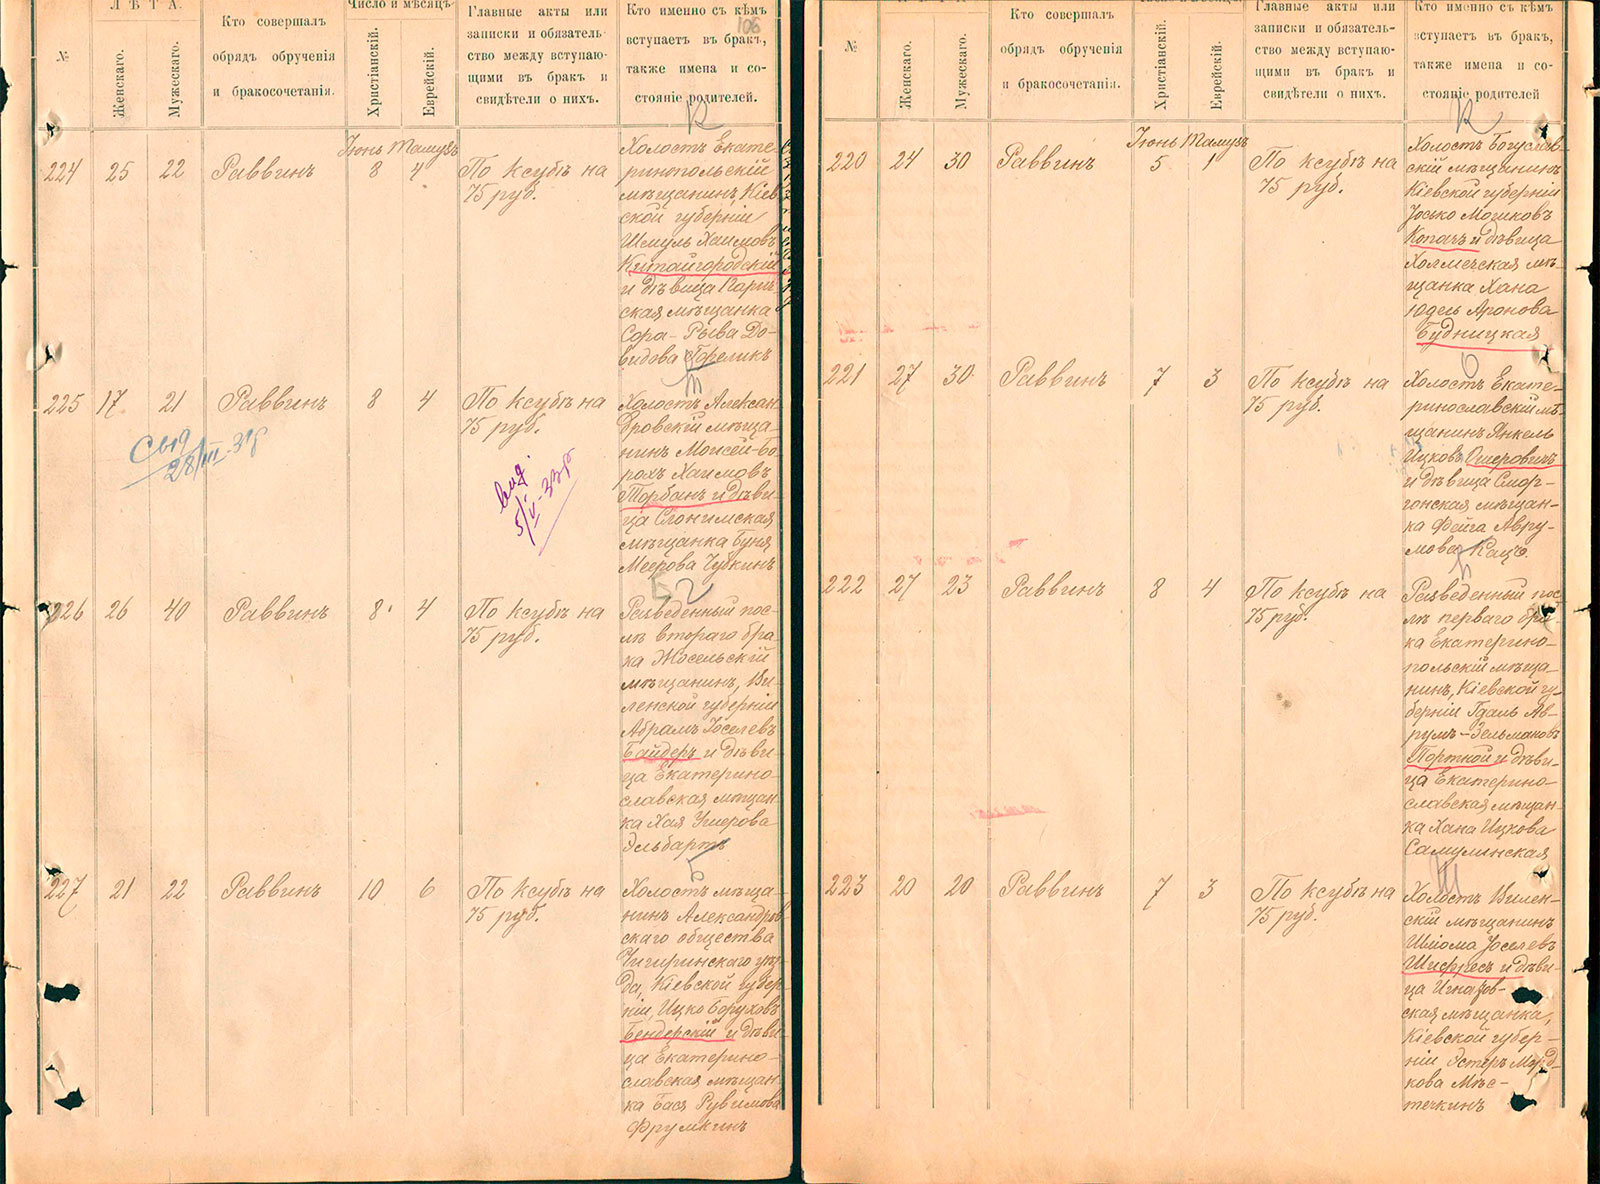 Л Ѣ Т А.
№
Женскаго.
Мужескаго.
Кто совершалъ
обрядъ обрученія
и бракосочетанія.
Число и мѣсяцъ
Христіанскій.
Еврейскій.
Главные акты или
записки и обязатель-
ство между вступаю-
щими въ бракъ и
свидѣтели о нихъ.
Кто именно съ кѣмъ
вступаетъ въ бракъ,
также имена и со-
стояніе родителей.
106
К
Іюнь Тамузъ
224 25 22 Раввинъ 8 4
По ксубѣ на
75 руб.
Холостъ Екате-
ринопольскій
мѣщанинъ, Кіев
ской губерніи
Шмуль Хаимовъ
Китайгородскій
и дѣвица
ская мѣщанка
Сора-Рыва До-
видова Горелик
225 17. 21 Раввинъ 8 4
По ксубѣ на
75 руб.
28/III-31г
5/V-33г
Холостъ Алексан
дровскій мѣща
нинъ Мовсей-Бо
рохъ Хаимовъ
Торбанъ и дѣви
ца Слонимская
мѣщанка Буня
Меерова Чубкинъ
226 26 40 Раввинъ 8 4
По ксубѣ на
75 руб.
Разведенный пос-
лѣ втораго бра
ка Жосельскій
мѣщанинъ, Ви-
ленской губерніи
Абрамъ Іоселевъ
Байдеръ и дѣви
ца Екатерино-
славская мѣщан
ка Хая Ушерова
Эльбартъ
Б
227 21 22 Раввинъ 10 6
По ксубѣ на
75 руб.
Холостъ мѣща-
нинъ Александров
скаго общества
Чигиринскаго уѣз
да, Кіевской губер
ніи, Ицко Боруховъ
Бендерскій и дѣви
ца Екатерино-
славская мѣщан
ка Бася Рувимова
Фрумкинъ
№
Женскаго.
Мужескаго.
Кто совершалъ
обрядъ обрученія
и бракосочетанія.
Христіанскій.
Еврейскій.
Главные акты или
записки и обязатель-
ство между вступаю-
щими въ бракъ и
свидѣтели о нихъ.
Кто именно съ кѣмъ
вступаетъ въ бракъ,
также имена и со-
стояніе родителей
К
Іюнь Тамузъ
220 24 30 Раввинъ 5 1
По ксубѣ на
75 руб.
Холостъ Богуслав
скій мѣщанинъ
Кіевской губерніи
Іосько Мошковъ
Копачъ и дѣвица
Холмечская мѣ-
щанка Хана
Юдель Аронова
Будницкая
О
221 27 30 Раввинъ 7 3
По ксубѣ на
75 руб.
Холостъ Екате-
ринославскій мѣ-
щанинъ Янкель
Ицковъ Ошеровичъ
и дѣвица Смор-
гонская мѣщан-
ка Фейга Авру-
мова Кацъ
П
222 27 23 Раввинъ 8 4
По ксубѣ на
75 руб.
Разведенный пос
лѣ перваго бра-
ка Екатерино-
польскій мѣща-
нинъ, Кіевской гу-
берніи Гдаль Ав-
румъ-Зельмановъ
Портной и дѣви-
ца Екатерино-
славская мѣщан-
ка Хана Ицкова
Самулинская
Ш
223 20 20 Раввинъ 7 3
По ксубѣ на
75 руб.
Холостъ Вилен-
скій мѣщанинъ
Шлома Іоселевъ
Шифресъ и дѣви-
ца Игнатов-
ская мѣщанка,
Кіевской губер-
ніи Эстеръ Морд-
кова Мѣс-
течкинъ